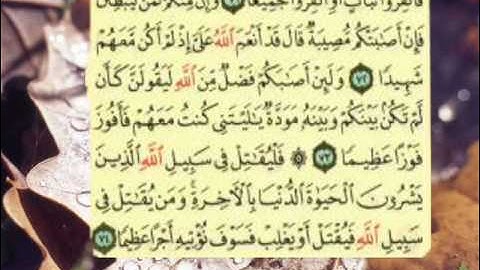 فَٱنفِرُوا۟ ثُبَاتٍ أَوِ ٱنفِرُوا۟ جَمِيعًا ٧١ وَإِنَّ مِنكُمْ لَمَن لَّيُبَطِّئَنَّ
فَإِنْ أَصَٰبَتْكُم مُّصِيبَةٌ قَالَ قَدْ أَنْعَمَ ٱللَّهُ عَلَىَّ إِذْ لَمْ أَكُن مَّعَهُمْ
شَهِيدًا ٧٢ وَلَئِنْ أَصَٰبَكُمْ فَضْلٌ مِّنَ ٱللَّهِ لَيَقُولَنَّ كَأَن
لَّمْ تَكُنۢ بَيْنَكُمْ وَبَيْنَهُۥ مَوَدَّةٌ يَٰلَيْتَنِى كُنتُ مَعَهُمْ فَأَفُوزَ
فَوْزًا عَظِيمًا ٧٣ ۞ فَلْيُقَٰتِلْ فِى سَبِيلِ ٱللَّهِ ٱلَّذِينَ
يَشْرُونَ ٱلْحَيَوٰةَ ٱلدُّنْيَا بِٱلْءَاخِرَةِ ۚ وَمَن يُقَٰتِلْ فِى
سَبِيلِ ٱللَّهِ فَيُقْتَلْ أَوْ يَغْلِبْ فَسَوْفَ نُؤْتِيهِ أَجْرًا عَظِيمًا ٧٤